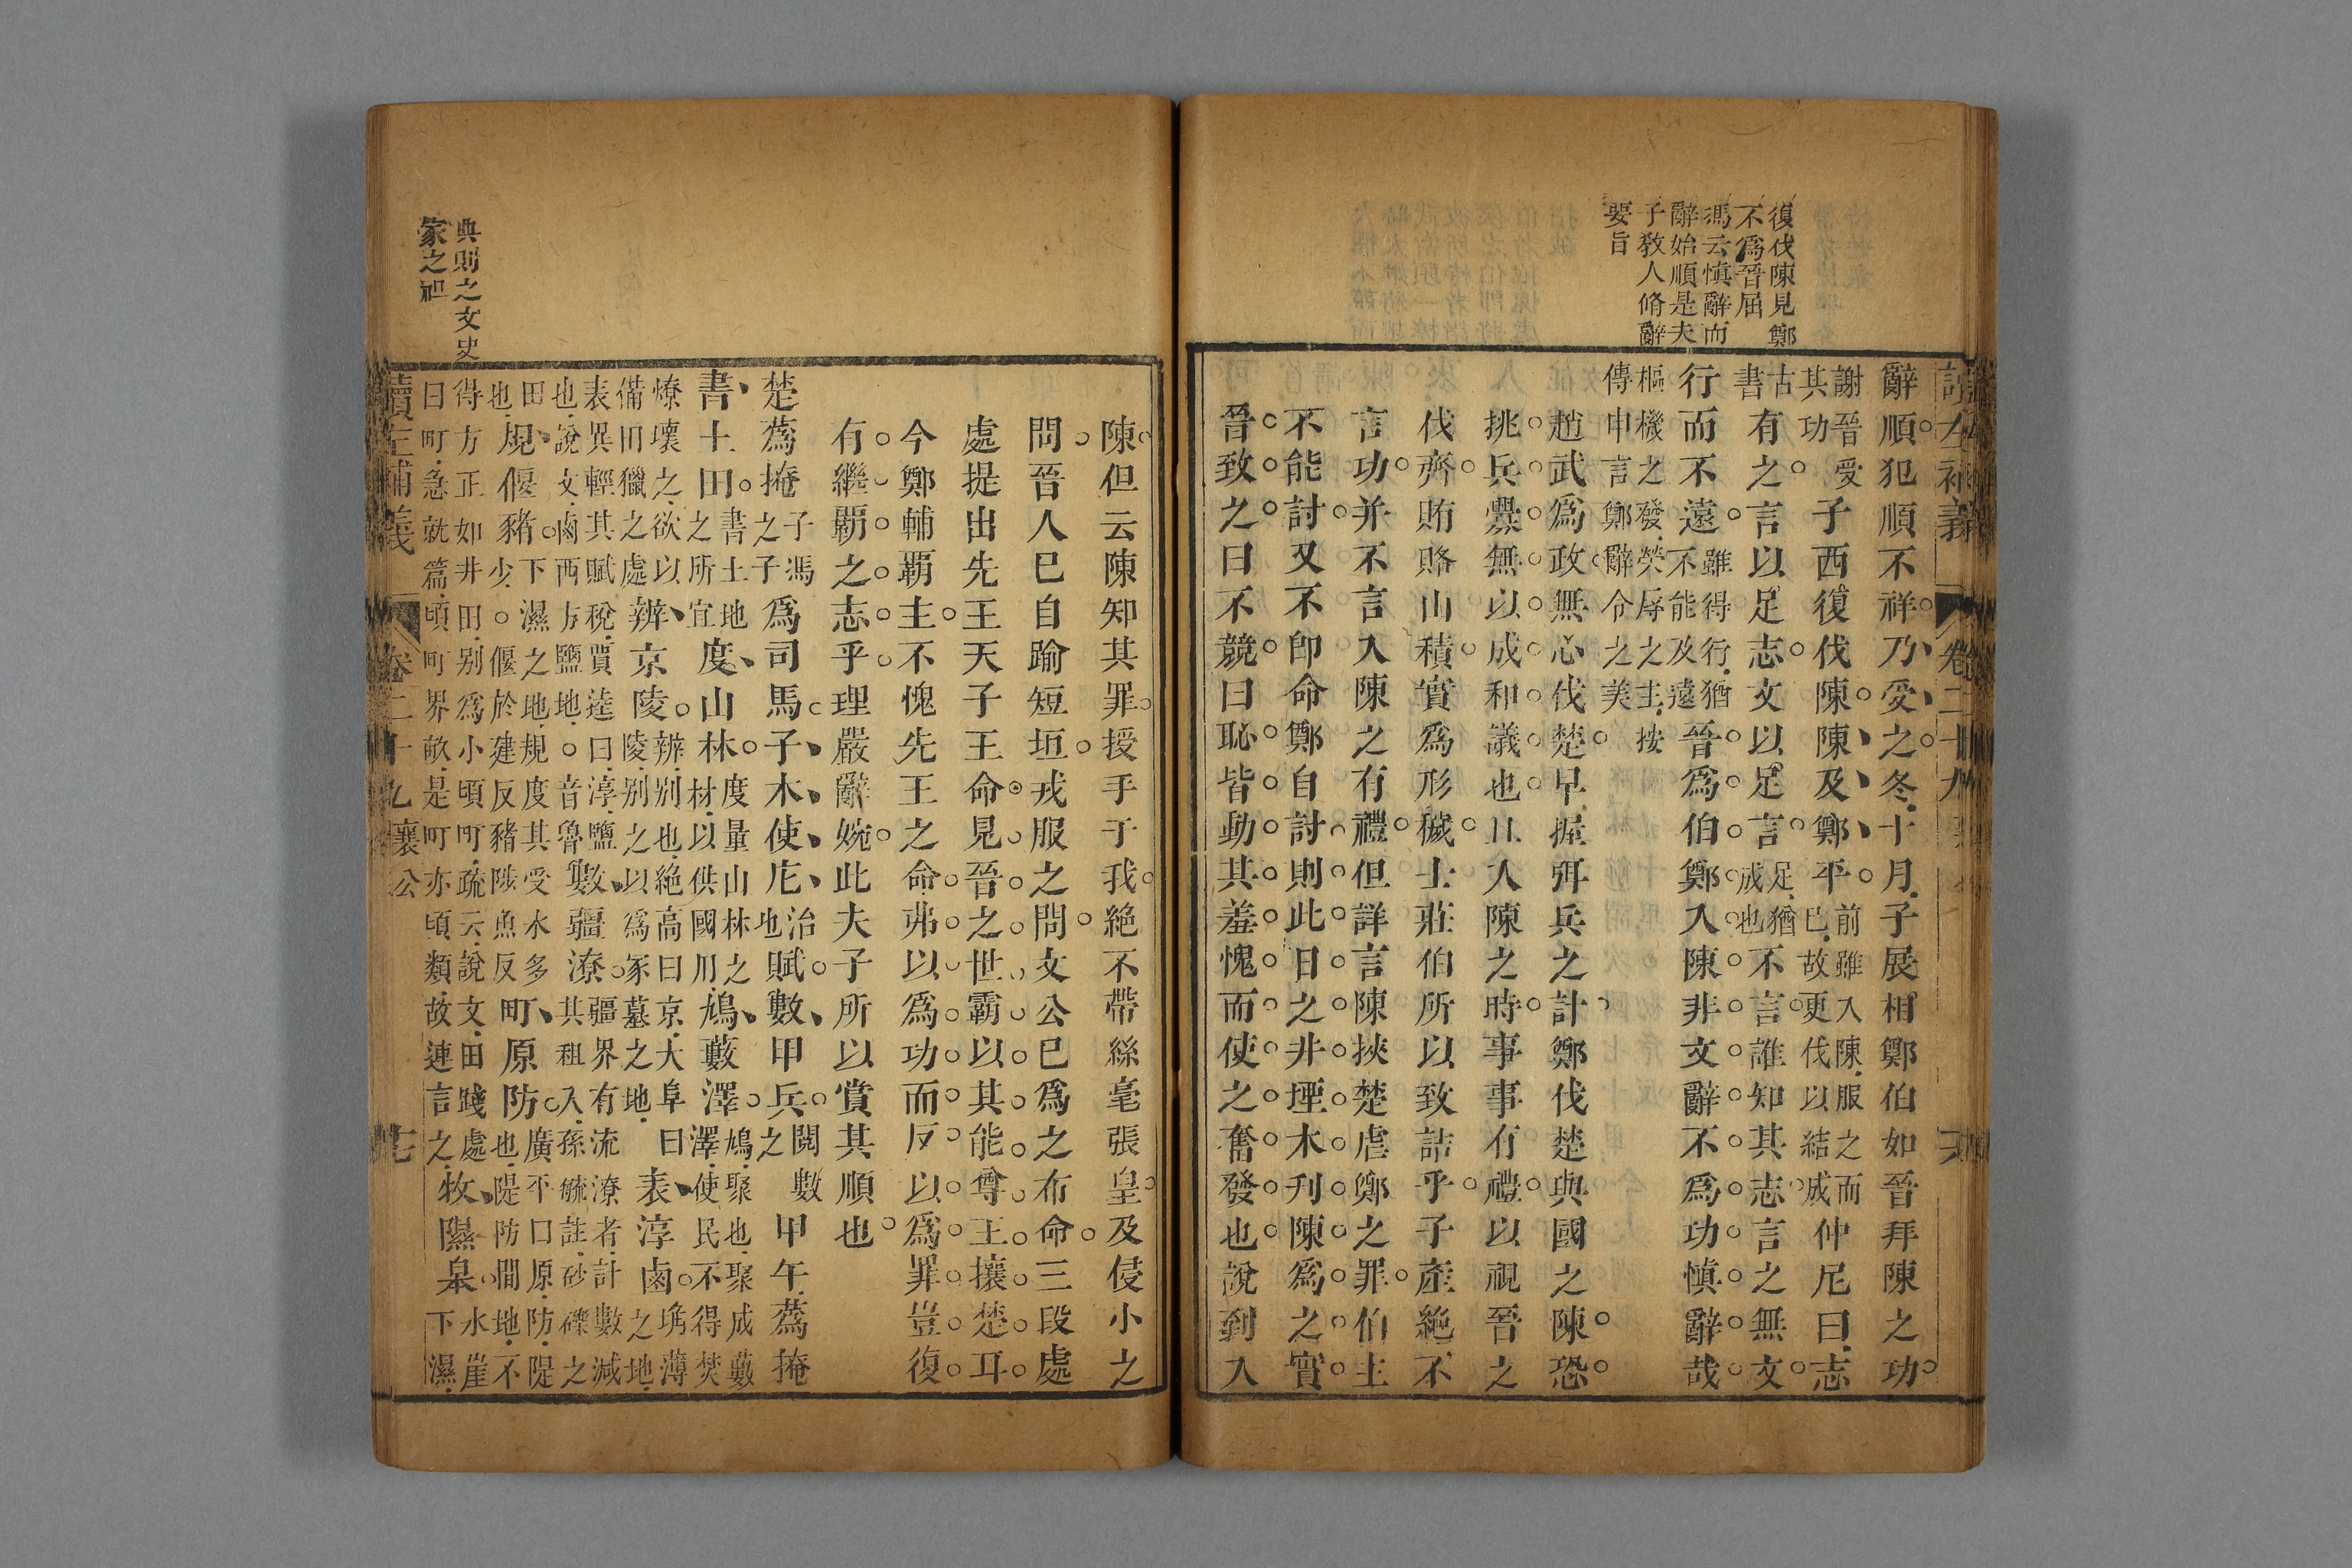 復伐陳見鄭
不爲晉屈
馮云慎辭而
辭始順是夫
子教人脩辭
要旨
辭順犯順不祥乃受之冬十月子展相鄭伯如晉拜陳之功
謝晉受
其功
子西復伐陳陳及鄭平
前雖入陳服之而
已故更伐以結成
仲尼曰志
古
書
有之言以足志文以足言
足猶
成也
不言誰知其志言之無文
行而不遠
雖得行猶
不能及遠
晉爲伯鄭入陳非文辭不爲功慎辭哉
樞機之發榮辱之主按
傳申言鄭辭令之美
趙武爲政無心伐楚早握弭兵之計鄭伐楚與國之陳恐
挑兵釁無以成和議也且入陳之時事事有禮以視晉之
伐齊賄賂山積實爲形穢士莊伯所以致詰乎子產絶不
言功并不言入陳之有禮但詳言陳挾楚虐鄭之罪伯主
不能討又不即命鄭自討則此日之井堙木刋陳爲之實
晉致之曰不競曰恥皆動其羞愧而使之奮發也說到入
讀左補義
卷二十九
陳但云陳知其罪授手于我絶不帶絲毫張皇及侵小之
問晉人已自踰短垣戎服之問文公已爲之布命三段處
處提出先王天子王命見晉之世霸以其能尊王攘楚耳
今鄭輔覇主不愧先王之命弗以爲功而反以爲罪豈復
有繼覇之志乎理嚴辭婉此夫子所以賞其順也
楚蒍掩
子馮
之子
爲司馬子木使庀
治
也
賦數甲兵
閱數
之
甲午蒍掩
書土田
書土地
之所宜
度山林
度量山林之
材以供國用
鳩藪澤
鳩聚也聚成藪
澤使民不得焚
燎壞之欲以
備田獵之處
辨京陵
辨別也絶高曰京大阜曰
陵別之以爲冢墓之地
表淳鹵
埆薄
之地
表異輕其賦稅賈逵曰淳鹽
也說文鹵西方鹽地音魯
數疆潦
疆界有流潦者計數減
其租入孫毓註砂礫之
田
也
規偃豬
下濕之地規度其受水多
少偃於建反豬陟魚反
町原防
廣平曰原防隄
也隄防間地不
得方正如井田別爲小頃町疏云說文田踐處
曰町急就篇頃町界畝是町亦頃類故連言之
牧隰皋
水崖
下濕
典則之文史
家之祖
讀左補義
卷二十九
襄公
七